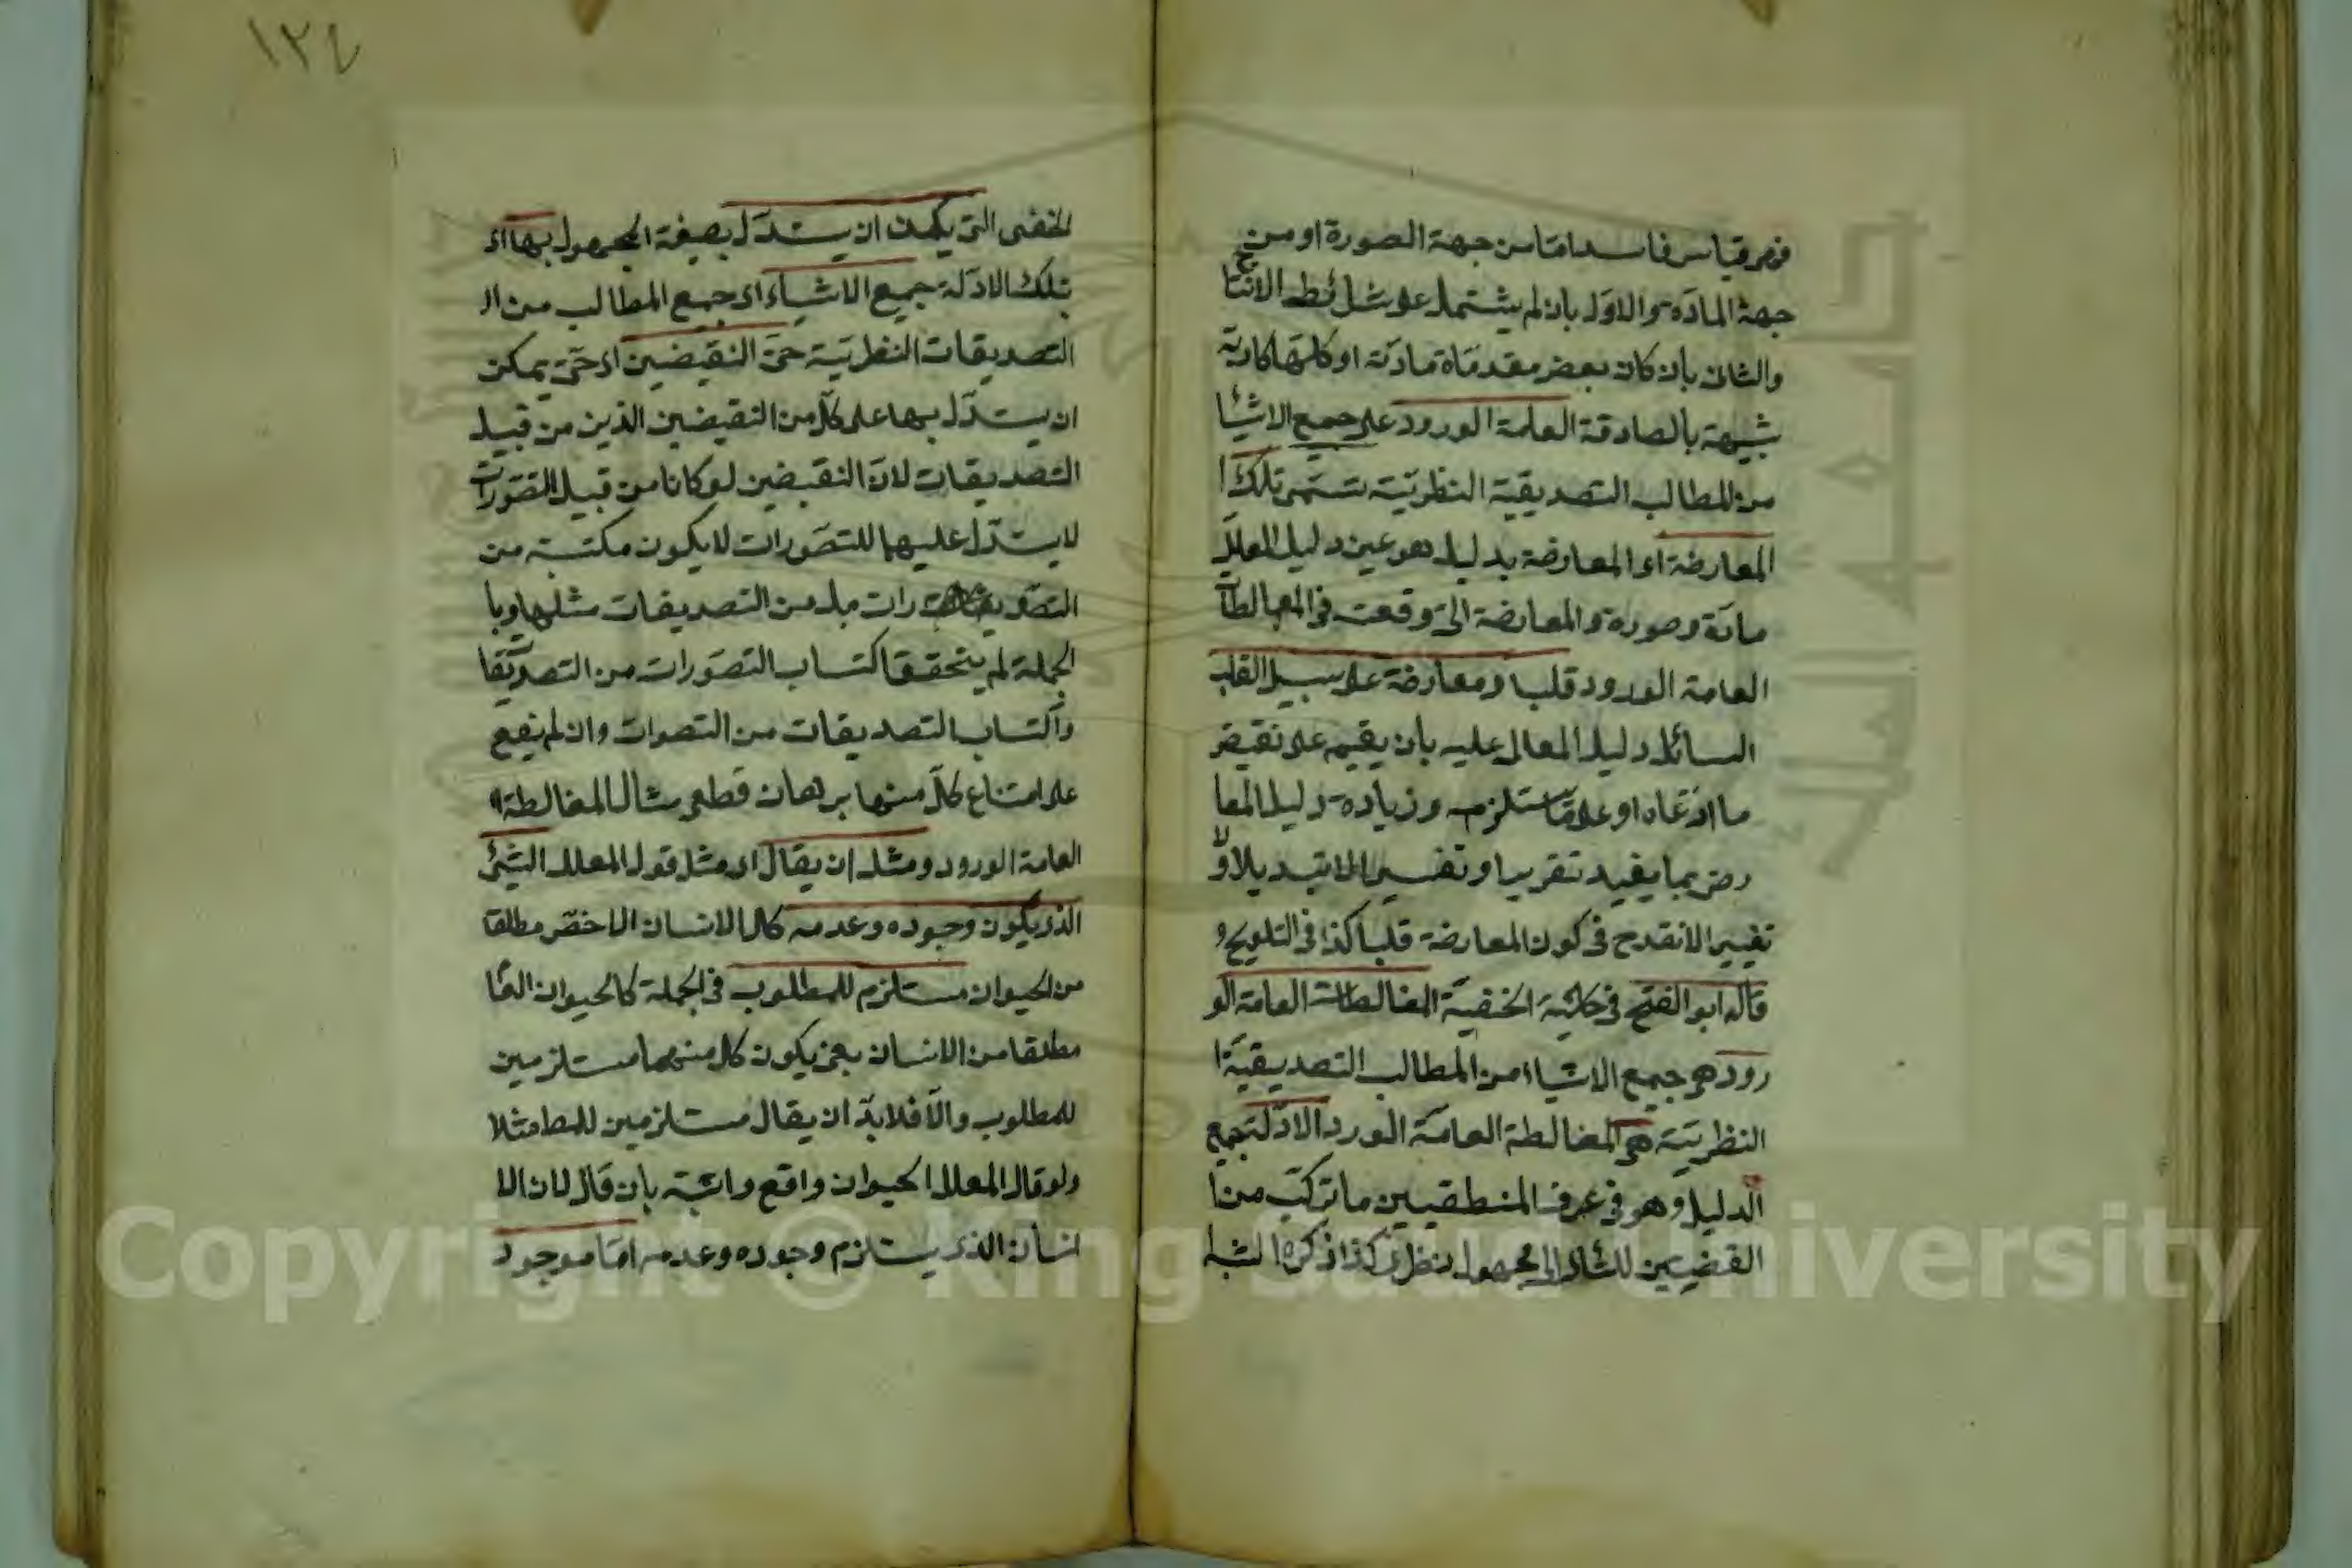 ١٢٤
فهو قياس فاسد اما من جهة الصورة او من
جهة المادة والاول بان لم يشتمل على شرائط الانتاج
والثانى بان كان بعض مقدماة مادته او كلتها كاذبة
شبيهة بالصادقة العامة الورود على جميع الاشيا
من المطالب التصديقية النظرية تسمى تلك ا
المعارضة اى المعارضة بدليل هو عين دليل المعلل
مادة وصورة والمعارضة التى وقعت فى المغالطات
العامة الورود قلبا ومعارضة على سبيل القلب
السائل دليل المعال عليه بان يقيمه على نقيض
ما ادعاه او على ما يستلزمه وزيادة دليل المعا
رض بما يفيد تقريرا وتفسيرا لا تبديلا ولا
تغييرا لا تقدح فى كون المعارضة قلبا كذا فى التلويح و
قاله ابو الفتح فى حاشية الحنفية المغالطات العامة الو
رود هو جميع الاشياء من المطالب التصديقية ا
النظرية هى المغالطة العامة الورد الادلة جمع
الدليل وهو فى عرف المنطقيين ما تركب من ا
القضيتين للتأدى الى مجهول نظرى كذا ذكره
التى يمكن ان يستدل بصيغة المجهول بها اى
بتلك الادلة جميع الاشياء اى جميع المطالب من ال
التصديقات النظرية حتى النقيضين اى حتى يمكن
ان يستدل بها على كل من النقيضين الذين من قبيل
التصديقات لان النقيضين لو كانا من قبيل التصورات
لا يستدل عليهما للتصورات لا يكون مكتسبة من
رات بل من التصديقات مثلها وبا
الجملة لم يتحقق اكتساب التصورات من التصديقا
واكتساب التصديقات من التصوات وان لم يقع
على امتناع كل منها برهان قطعى مثال المغالطة ا
العامة الورود ومثل ان يقال اى مثل قول المعلل الشئ
الذى يكون وجوده وعدمه كالانسان الاخص مطلقا
من الحيوان مستلزم للمطلوب فى الجملة كالحيوان العا
مطلقا من الانسان يعنى يكون كل منهما مستلزمين
للمطلوب والا فلا بد ان يقال مستلزمين للمط مثلا
ولو قال المعلل الحيوان واقع واثبته بان قال لان الا
انسان الذى يستلزم وجوده وعدمه اما موجود
Copyright © King Saud University